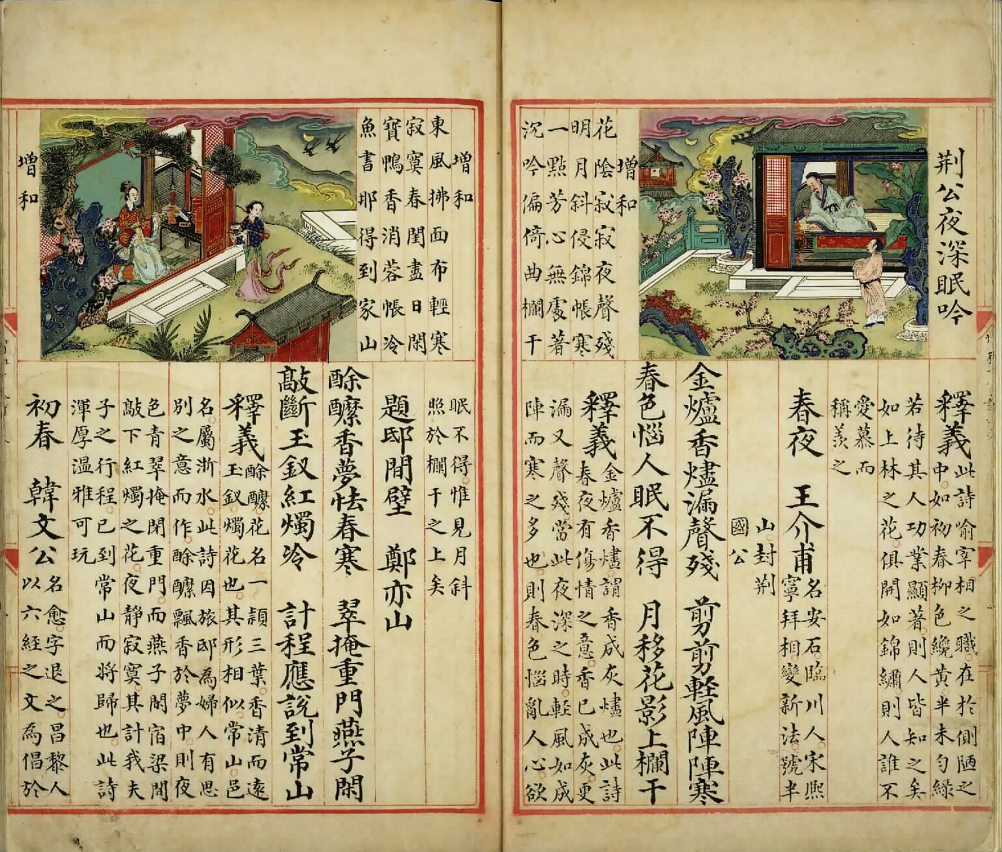 荆公夜深眠吟
增和
花陰寂寂夜聲殘
明月斜侵錦帳寒
一點芳心無處著
沉吟偏倚曲欄干
釋義 此詩喻宰相之職在於側陋之
中如初春抑色纔黃半未勻綠
若待其人功業顯著則人皆知之矣
如上林之花俱開如錦繡則人誰不
愛慕而
稱羨之
春夜 王介甫 名安石臨川人宋熙
寧拜相變新法號半
山封荆
國公
金爐香燼漏聲殘 剪剪軽風陣陣寒
春色惱人眠不得 月移花影上欄干
釋義 金爐香燼謂香成灰燼也此詩
春夜有傷情之意香已成灰更
漏又聲殘當此夜深之時軽風如成
陣而寒之多也則春色惱亂人心欲
增和
東風拂面布輕寒
寂寞春閨盡日閑
寶鴨香消蓉帳冷
魚書那得到家山
增和
眠不得惟見月斜
照於欄干之上矣
題邸間壁 鄭亦山
酴醿香夢怯春寒 翠掩重門燕子閒
敲斷玉釵紅燭冷 計程應説到常山
釋義 酴醿花名一頴三葉香清而遠
玉釵燭花也其形相似常山邑
名屬浙水此詩因旅邸為婦人有思
別之意而作酴醿飄香於夢中則夜
色青翠掩閉重門而燕子閒宿梁間
敲下紅燭之花夜靜寂寞其計我夫
子之行程已到常山而將歸也此詩
渾厚溫雅可玩
初春 韓文公 名愈字退之昌黎人
以六經之文為倡於